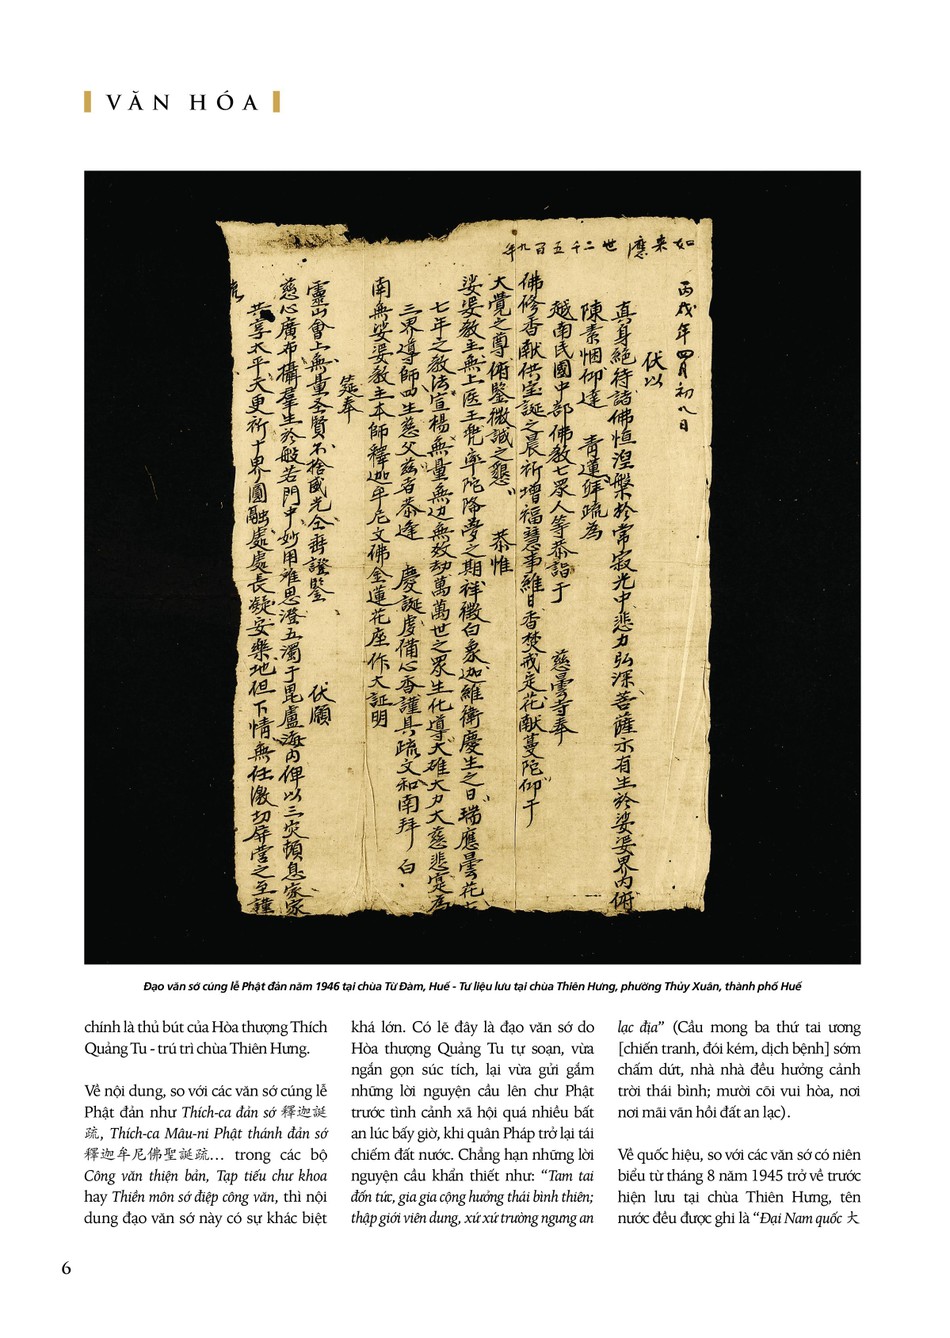 VĂN HÓA
如來應世二千五百九年
丙戌年四月初八日
伏以
真身絶待諸佛恒涅槃於常寂光中悲力弘深菩薩示有生於娑婆界内俯
陳素悃仰達 青蓮拜疏為
越南民國中部佛教七眾人等恭詣于 慈曇寺奉
佛修香献供宝誕之晨祈增福慧事維日香焚戒定花献蔓陀仰干
大覺之尊俯鑒微誠之懇 恭惟
娑婆教主無上医王兜率陀降夢之期祥徵白象迦維衛慶生之日瑞應曇花七
七年之教法宣楊無量無边無数劫萬萬世之眾生化導大雄大力大慈悲寔為
三界導師四生慈父兹者恭逢 慶誕虔備心香謹具疏文和南拜 白
南無娑婆教主本師釋迦牟尼文佛金蓮花座作大証明
筵奉
靈山會上無量圣賢不捨威光仝垂證鑒 伏願
慈心廣布搆羣生於般若門中妙用难思澄五濁于毘盧海内俾以三灾頓息家家
共享太平天更祈十界圓融處處長凝安樂地但下情無任激切屏营之至謹
疏
Đạo văn sớ cúng lễ Phật đản năm 1946 tại chùa Từ Đàm, Huế - Tư liệu lưu tại chùa Thiên Hưng, phường Thủy Xuân, thành phố Huế
chính là thủ bút của Hòa thượng Thích
Quảng Tu - trú trì chùa Thiên Hưng.
Về nội dung, so với các văn sớ cúng lễ
Phật đản như Thích-ca đản sớ 釋迦誕
疏, Thích-ca Mâu-ni Phật thánh đản sớ
釋迦牟尼佛聖誕疏... trong các bộ
Công văn thiện bản, Tạp tiếu chư khoa
hay Thiền môn sớ điệp công văn, thì nội
dung đạo văn sớ này có sự khác biệt
khá lớn. Có lẽ đây là đạo văn sớ do
Hòa thượng Quảng Tu tự soạn, vừa
ngắn gọn súc tích, lại vừa gửi gắm
những lời nguyện cầu lên chư Phật
trước tình cảnh xã hội quá nhiều bất
an lúc bấy giờ, khi quân Pháp trở lại tái
chiếm đất nước. Chẳng hạn những lời
nguyện cầu khẩn thiết như: “Tam tai
đốn tức, gia gia cộng hưởng thái bình thiên;
thập giới viên dung, xứ xứ trường ngưng an
lạc địa” (Cầu mong ba thứ tai ương
[chiến tranh, đói kém, dịch bệnh] sớm
chấm dứt, nhà nhà đều hưởng cảnh
trời thái bình; mười cõi vui hòa, nơi
nơi mãi vãn hồi đất an lạc).
Về quốc hiệu, so với các văn sớ có niên
biểu từ tháng 8 năm 1945 trở về trước
hiện lưu tại chùa Thiên Hưng, tên
nước đều được ghi là “Đại Nam quốc 大
6